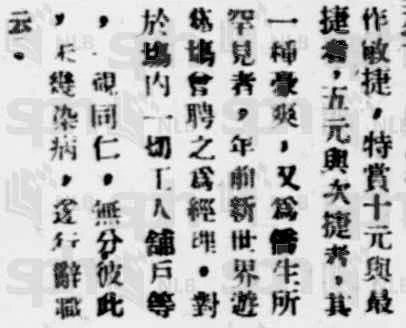 作敏捷，特賞十元與最
捷者，五元與次捷者，其
一種豪爽，又為僑生所
罕見者，年前新世界遊
藝塲曾聘之爲經理。對
於塲內一切工人舖戶等
，一視同仁，無分彼此
，未幾染病，遂行辭職
云。